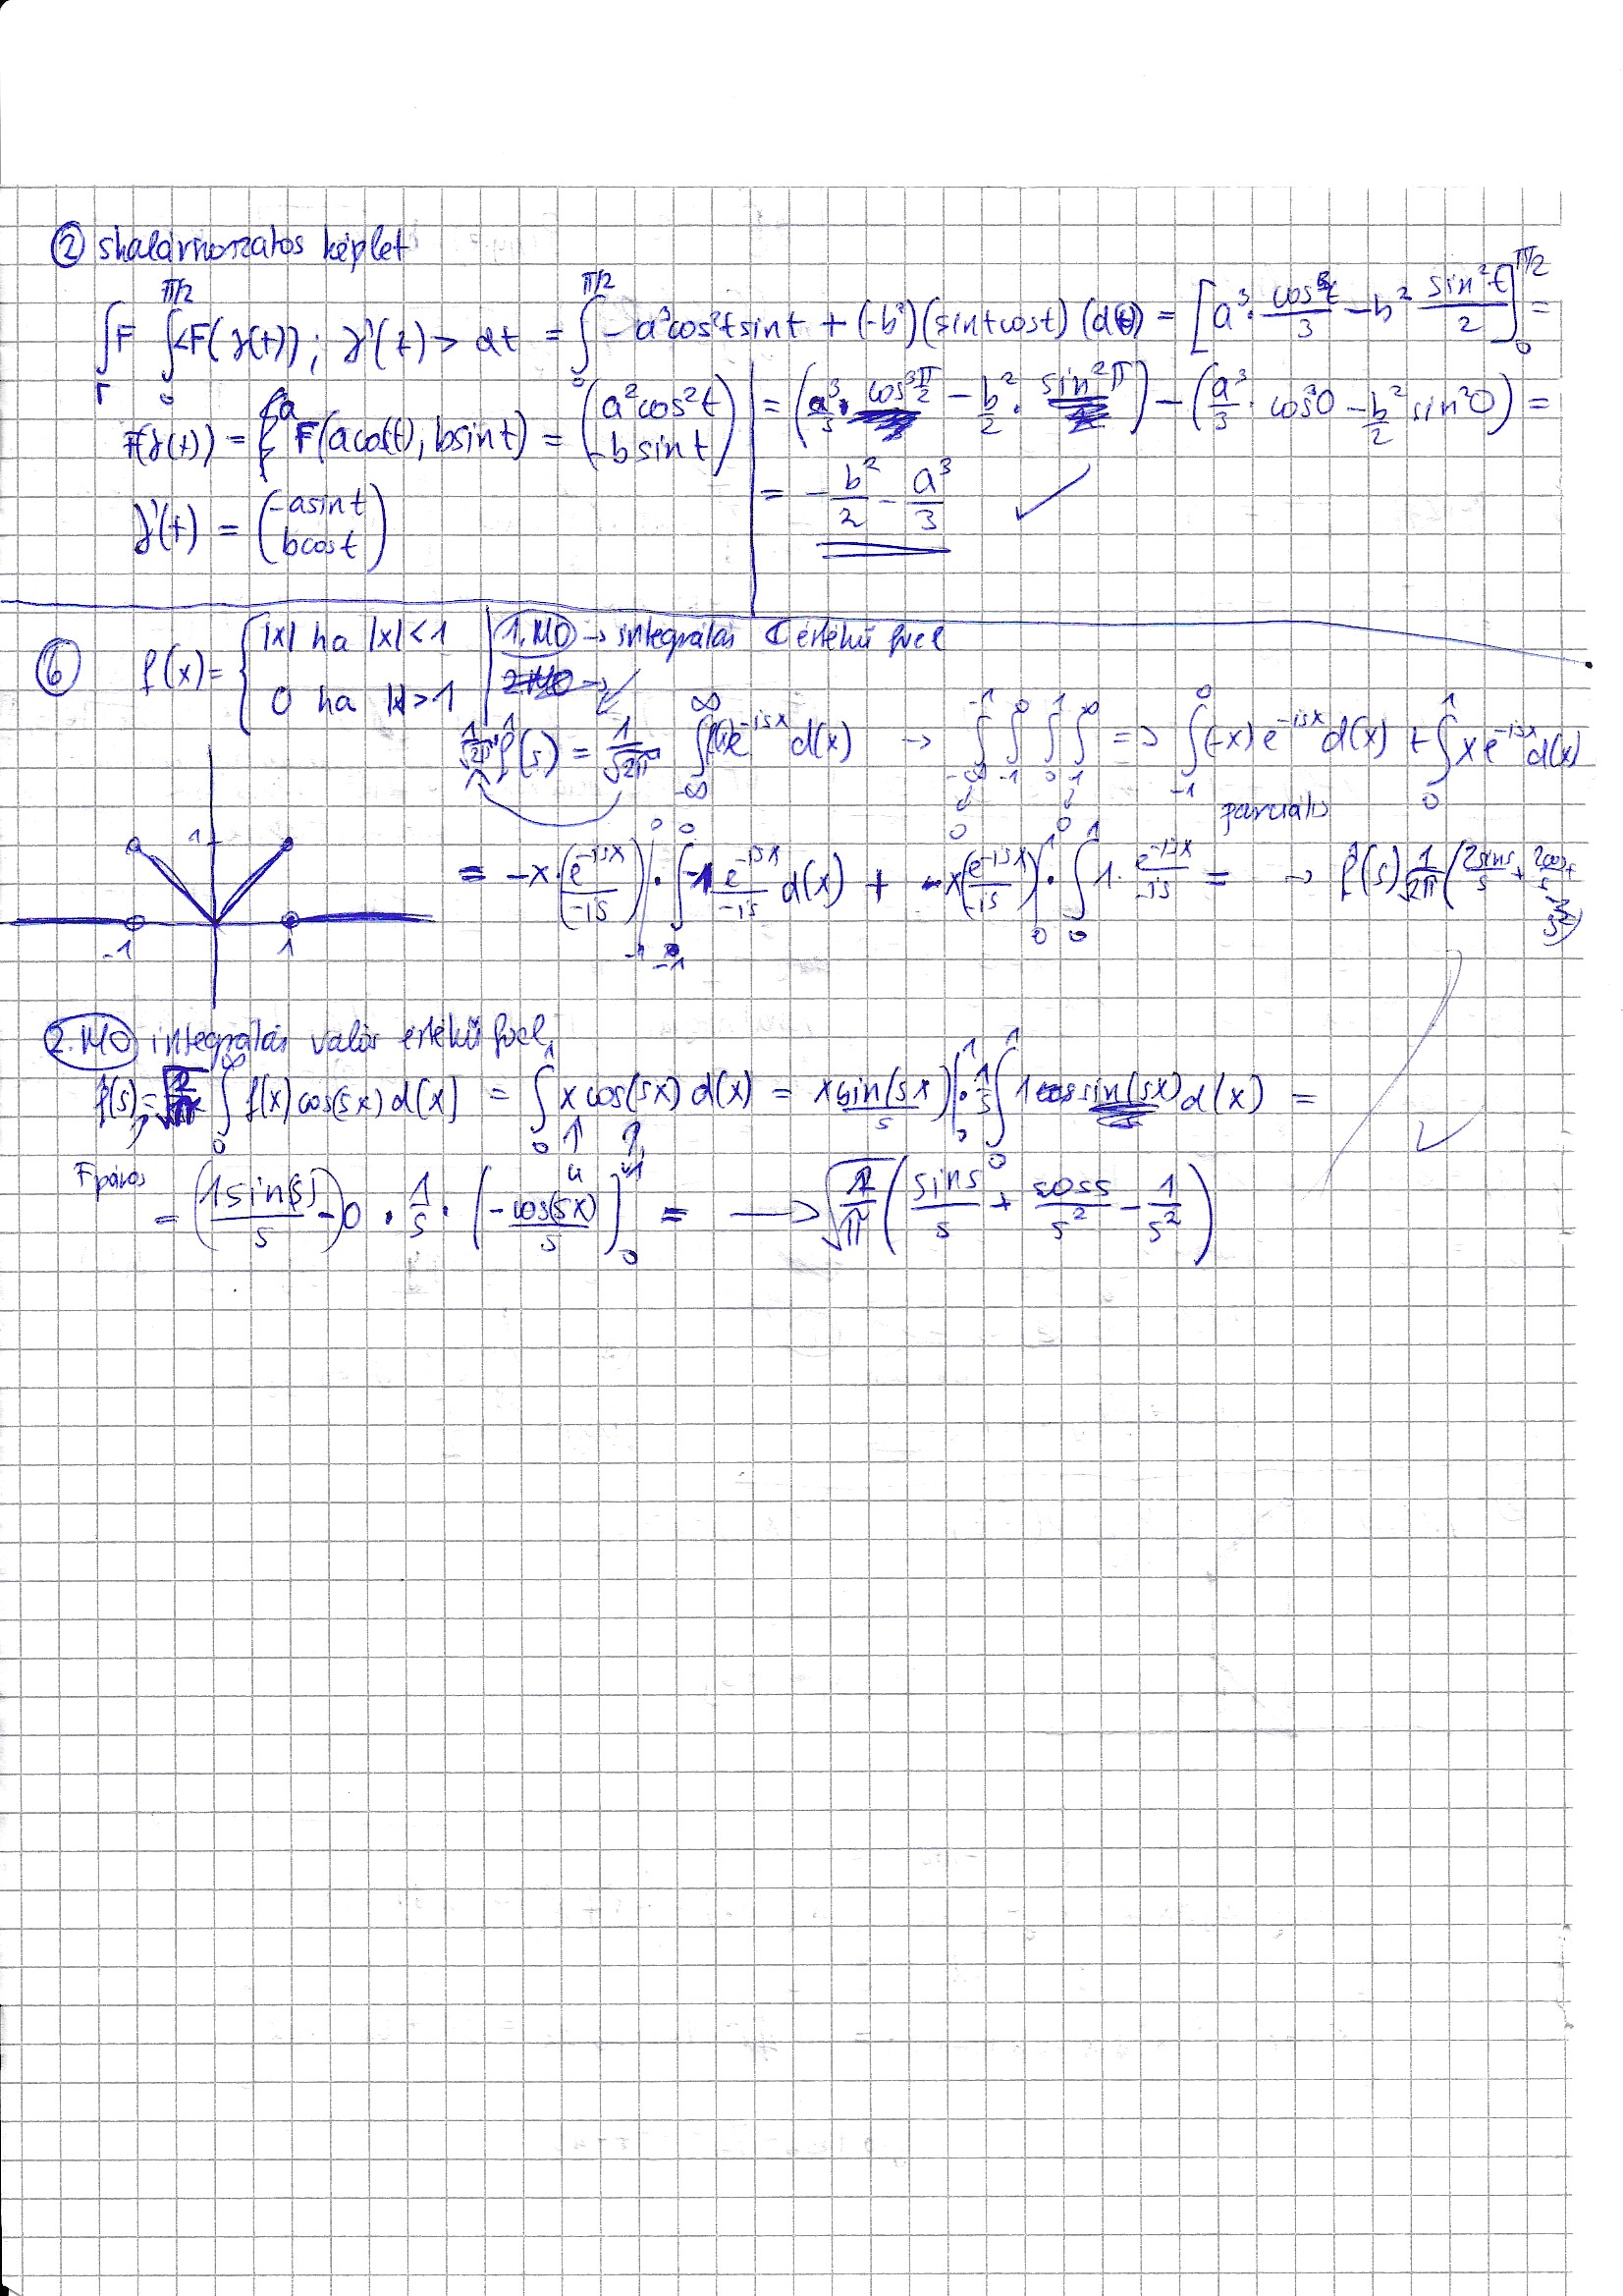 ② skalárszorzatos képlet
∫_Γ F ∫_0^{π/2} <F(γ(t)); γ'(t)> dt = ∫_0^{π/2} -a³cos²t sint + (-b²)(sint cost) (dt) = [a³·cos³t/3 - b² sin²t/2]_0^{π/2} =
F(γ(t)) = F(acos(t), bsint) = (a²cos²t, -bsint)
= (a³/3 · cos³π/2 - b²/2 · sin²π) - (a³/3 · cos³0 - b²/2 sin²0) =
γ'(t) = (-asint, bcost)
= -b²/2 - a³/3 ✓
⑥ f(x) = { |x| ha |x|<1
0 ha |x|>1
1. MO → integrálás ℂ értékű fvel
1/√2π f̂(s) = 1/√2π ∫_{-∞}^{∞} f(x)e^{-isx} d(x) → ∫_{-∞}^{-1} ∫_{-1}^{0} ∫_0^1 ∫_1^∞ => ∫_{-1}^0 (-x)e^{-isx} d(x) + ∫_0^1 x e^{-isx} d(x)
0 0 parciális
= -x·(e^{-isx}/-is)|_{-1}^0 · ∫_{-1}^0 -1 e^{-isx}/-is d(x) + x(e^{-isx}/-is)|_0^1 · ∫_0^1 1· e^{-isx}/-is = → f̂(s) 1/√2π (2sins/s +
1
-1 1
2. MO integrálás valós értékű fvel
f̂(s) = √2/π ∫_0^∞ f(x) cos(sx) d(x) = ∫_0^1 x cos(sx) d(x) = x sin(sx)/s |_0^1 · 1/s ∫_0^1 1 sin(sx) d(x) =
F páros
= (1 sin(s)/s) - 0 · 1/s · (-cos(sx)/s]_0^1 = → √2/π (sins/s + coss/s² - 1/s²) ✓